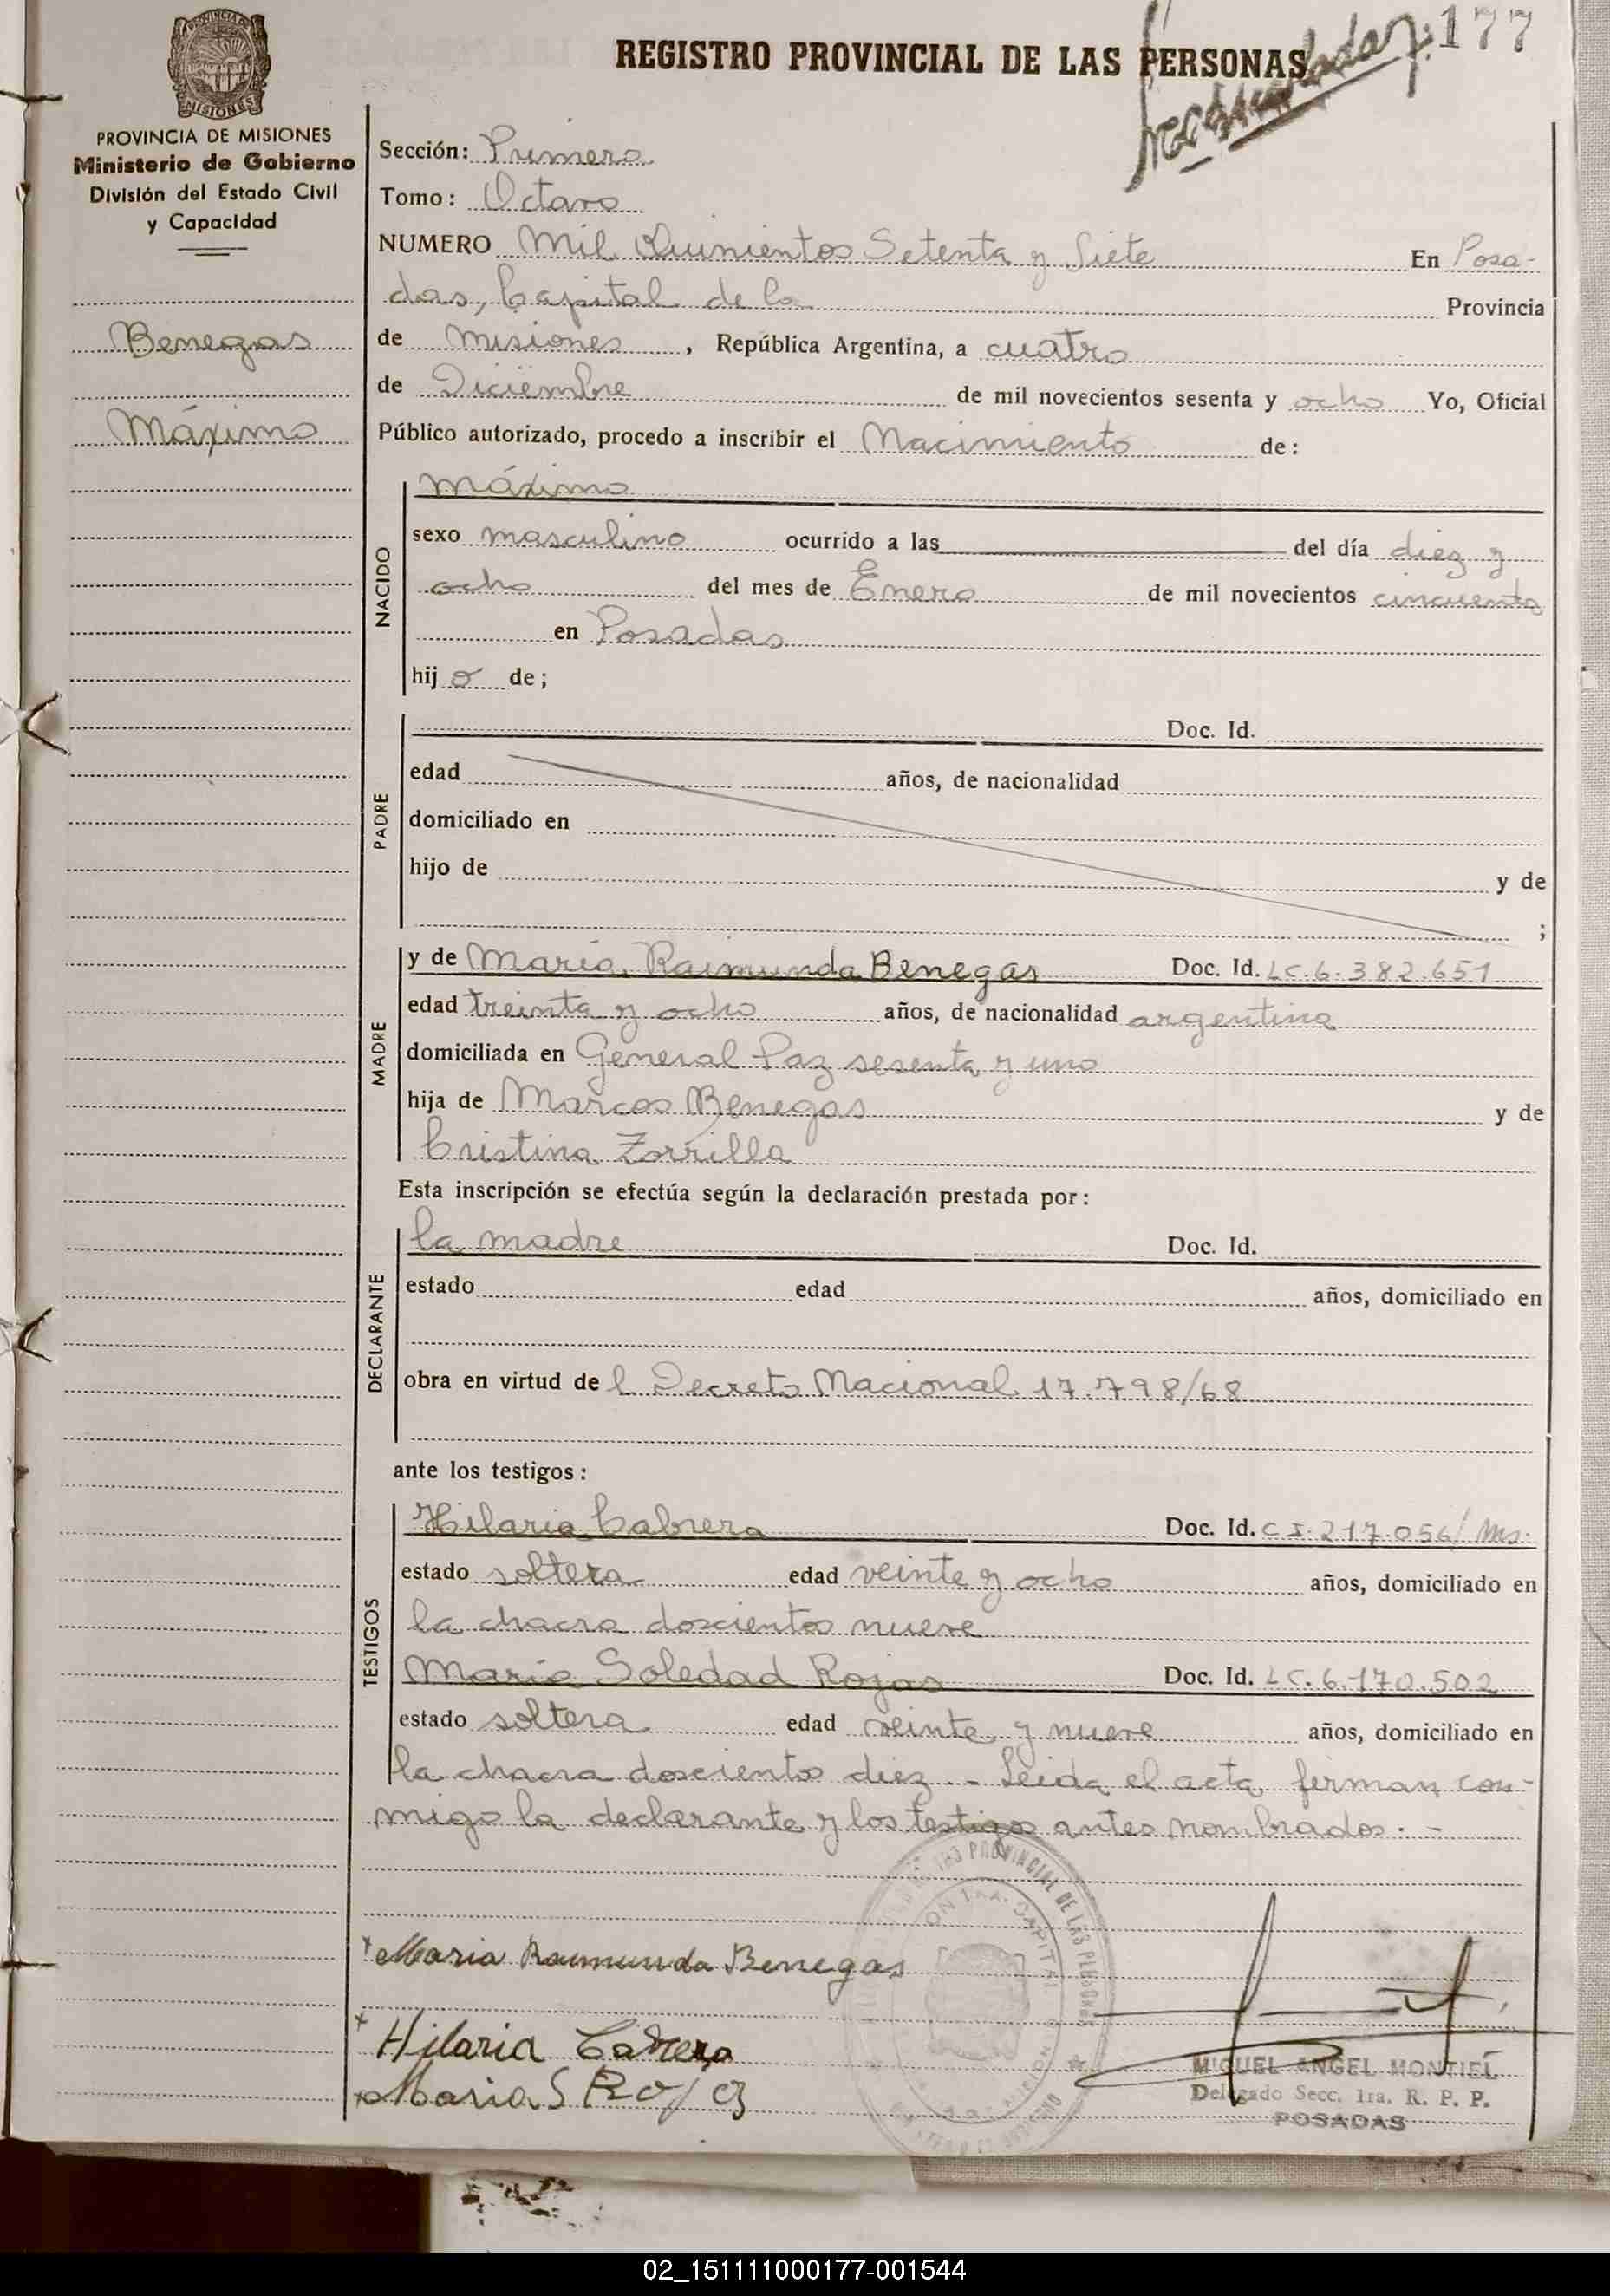 177
REGISTRO PROVINCIAL DE LAS PERSONAS
PROVINCIA DE MISIONES
Ministerio de Gobierno
División del Estado Civil
y Capacidad
Benegas
Máximo
Sección: Primera
Tomo: Octavo
NUMERO Mil Quinientos Setenta y Siete En Posa-
das, Capital de la Provincia
de Misiones, República Argentina, a cuatro
de Diciembre de mil novecientos sesenta y ocho Yo, Oficial
Público autorizado, procedo a inscribir el Nacimiento de:
NACIDO
Máximo
sexo masculino ocurrido a las del día diez y
ocho del mes de Enero de mil novecientos cincuenta
en Posadas
hijo de;
PADRE
Doc. Id.
edad años, de nacionalidad
domiciliado en
hijo de y de
;
MADRE
y de María Raimunda Benegas Doc. Id. LC. 6.382.651
edad treinta y ocho años, de nacionalidad argentina
domiciliada en General Paz sesenta y uno
hija de Marcos Benegas y de
Cristina Zorrilla
Esta inscripción se efectúa según la declaración prestada por:
DECLARANTE
la madre Doc. Id.
estado edad años, domiciliado en
obra en virtud del Decreto Nacional 17.798/68
ante los testigos:
TESTIGOS
Hilaria Cabrera Doc. Id. C I. 217.056/Ms.
estado soltera edad veinte y ocho años, domiciliado en
la chacra doscientos nueve
María Soledad Rojas Doc. Id. LC. 6.170.502
estado soltera edad veinte y nueve años, domiciliado en
la chacra doscientos diez.- Leida el acta, firman con-
migo la declarante y los testigos antes nombrados.-
Maria Raimunda Benegas
Hilaria Cabrera
Maria S Rojas
MIGUEL ANGEL MONTIEL
Delegado Secc. 1ra. R. P. P.
POSADAS
02_151111000177-001544